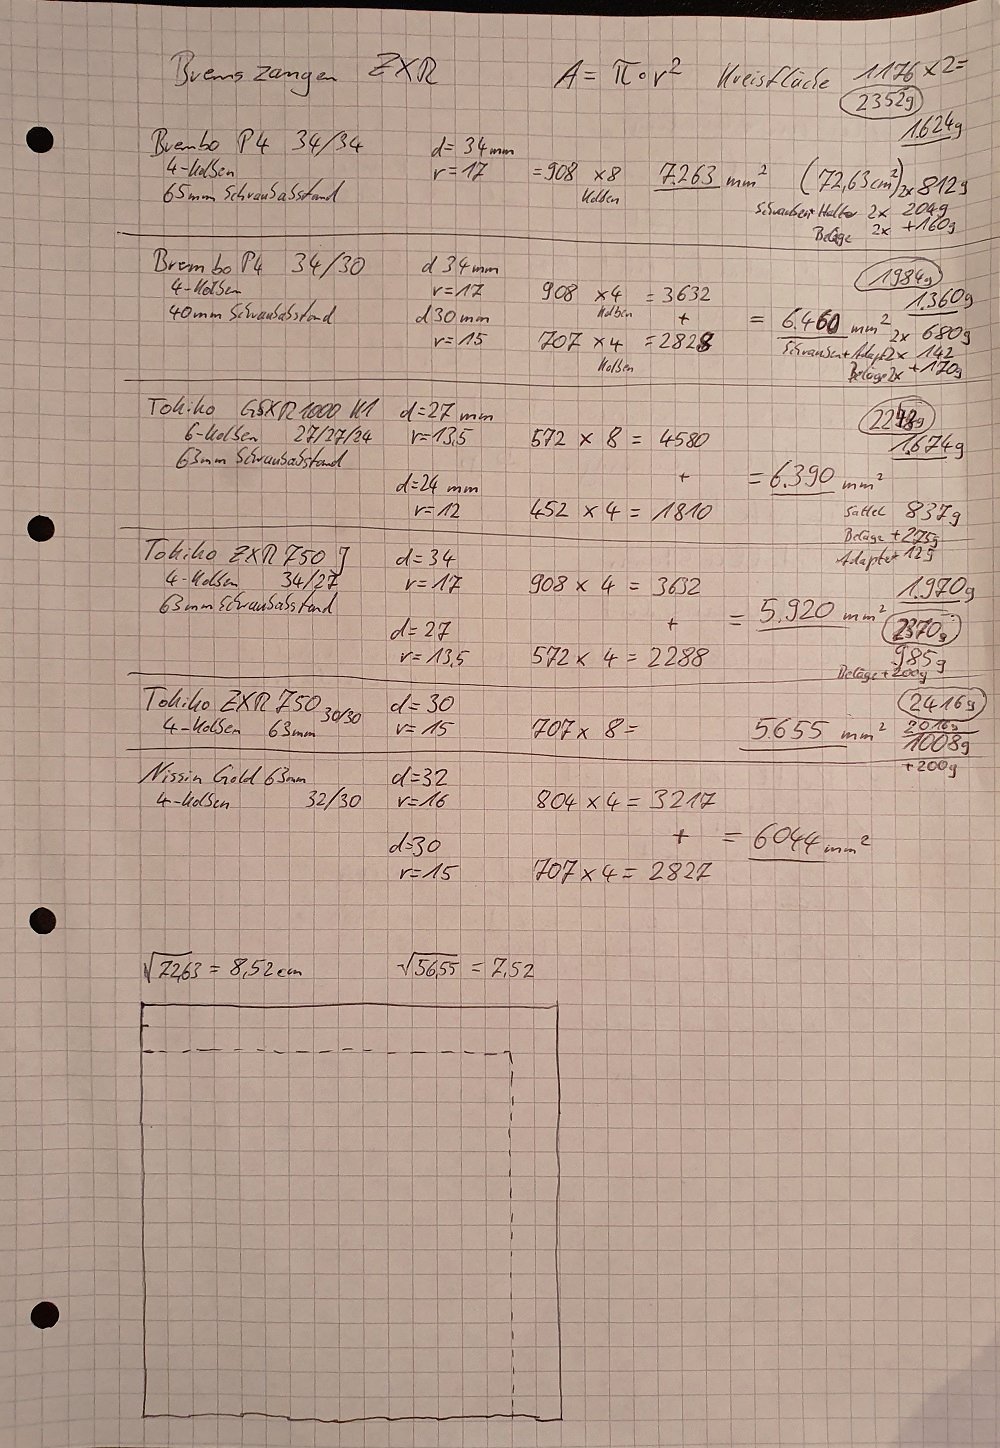 Bremszangen ZXR A = π • r² Kreisfläche 1176 x 2 =
2352g
1.624g
Brembo P4 34/34 d = 34 mm
4-Kolben r = 17 = 908 x 8 7.263 mm² (72,63 cm²) 2x 812g
Kolben
65mm Schraubabstand Schrauben + Halter 2x 204g
Beläge 2x +160g
Brembo P4 34/30 d 34 mm 1984g
4-Kolben r = 17 908 x 4 = 3632 1.360g
Kolben
40mm Schraubabstand d 30 mm + = 6.460 mm² 2x 680g
r = 15 707 x 4 = 2828 Schrauben + Adapt 2x 142
Kolben Beläge 2x +170g
Tokiko GSXR 1000 K1 d = 27 mm
6-Kolben 27/27/24 r = 13,5 572 x 8 = 4580 1.674g
63mm Schraubabstand + = 6.390 mm²
d = 24 mm
r = 12 452 x 4 = 1810 Sattel 837g
Beläge + 275g
Adapter + 12g
Tokiko ZXR 750 J d = 34
4-Kolben 34/27 r = 17 908 x 4 = 3632 1.970g
63mm Schraubabstand + = 5.920 mm² 2370g
d = 27
r = 13,5 572 x 4 = 2288 985g
Beläge + 200g
Tokiko ZXR 750 30/30 d = 30 2416g
4-Kolben 63mm r = 15 707 x 8 = 5655 mm² 2016g
1008g
+200g
Nissin Gold 63mm d = 32
4-Kolben 32/30 r = 16 804 x 4 = 3217
+ = 6044 mm²
d = 30
r = 15 707 x 4 = 2827
√72,63 = 8,52 cm √56,55 = 7,52